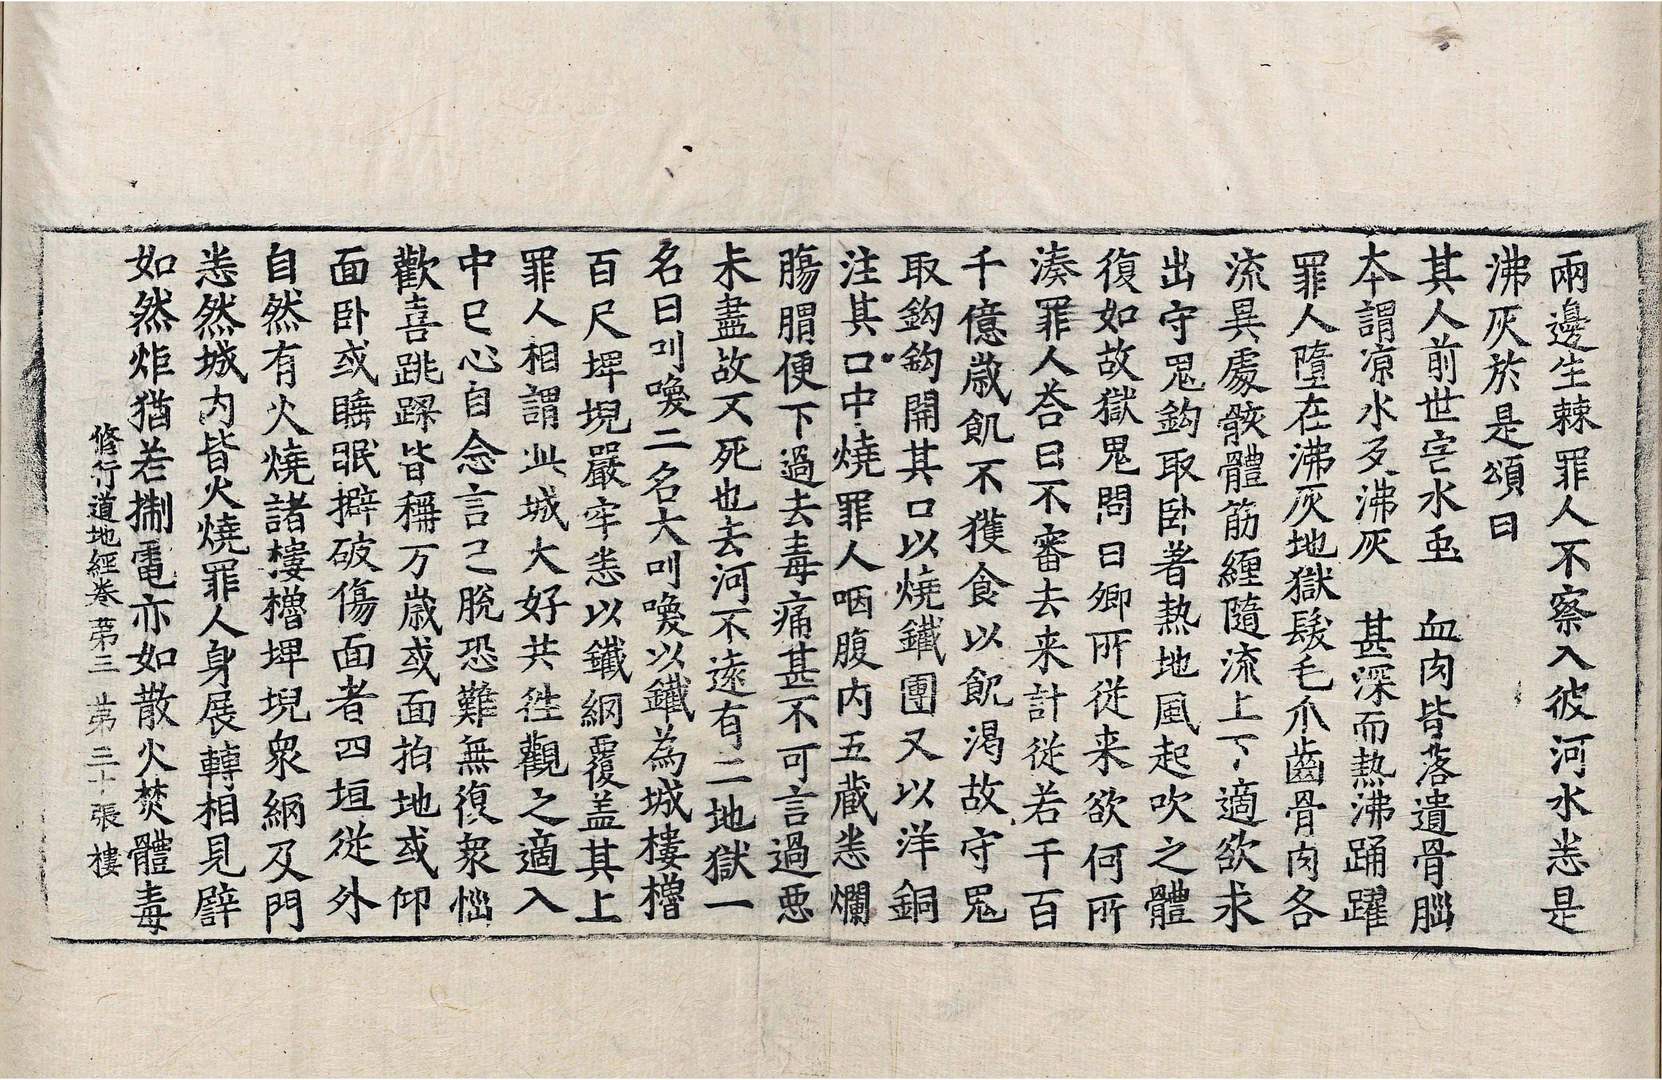 兩邊生棘罪人不察入彼河水悉是
沸灰於是頌曰
其人前世害水虫　血肉皆落遺骨𦙄
本謂凉水反沸灰　甚深而熱沸踊躍
罪人墮在沸灰地獄髮毛爪齒骨肉各
流異處骸體筋纏隨流上下適欲求
出守鬼鈎取卧著熱地風起吹之體
復如故獄鬼問曰卿所從来欲何所
湊罪人荅曰不審去来計從若千百
千億歲飢不獲食以飢渴故守鬼
取鈎鈎開其口以燒鐵團又以洋銅
注其口中燒罪人咽腹内五藏悉爛
膓胃便下過去毒痛甚不可言過惡
未盡故不死也去河不遠有二地獄一
名曰叫喚二名大叫喚以鐵為城樓櫓
百尺埤堄嚴牢悉以鐵網覆盖其上
罪人相謂此城大好共往觀之適入
中已心自念言已脫恐難無復衆惱
歡喜跳踤皆稱万歲或面拍地或仰
面卧或睡眠擗破傷面者四垣從外
自然有火燒諸樓櫓埤堄衆網及門
悉然城内皆火燒罪人身展轉相見譬
如然炬猶若掣電亦如散火焚體毒
修行道地經卷第三　第三十張　樓